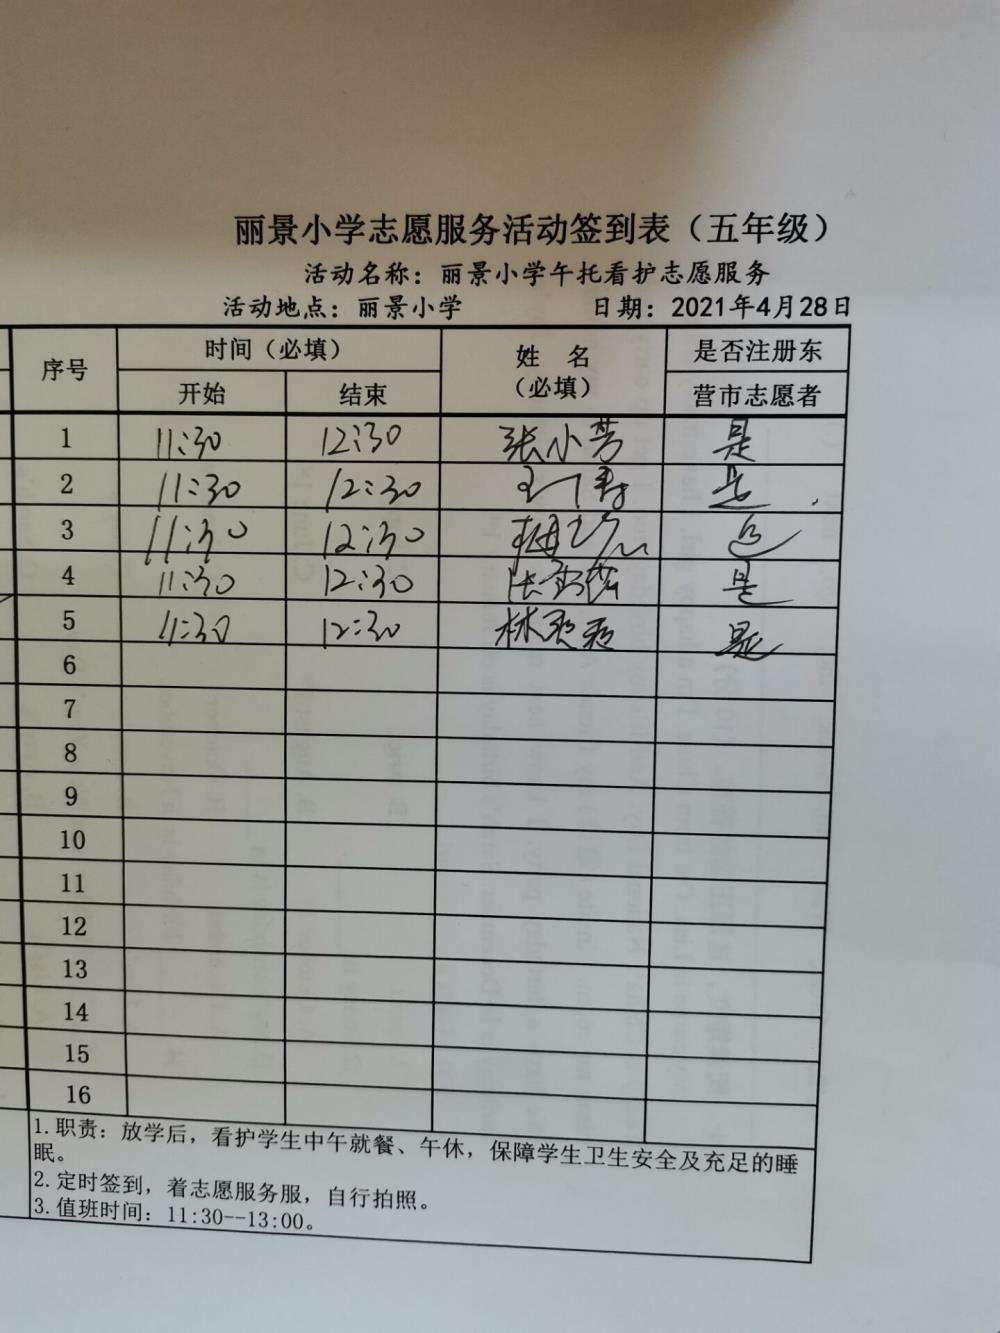 丽景小学志愿服务活动签到表（五年级）
活动名称：丽景小学午托看护志愿服务
活动地点：丽景小学 日期：2021年4月28日
序号 时间（必填） 姓 名 是否注册东
开始 结束 （必填） 营市志愿者
1 11:30 12:30 张小芳 是
2 11:30 12:30 是
3 11:30 12:30 是
4 11:30 12:30 是
5 11:30 12:30 林 是
6
7
8
9
10
11
12
13
14
15
16
1.职责：放学后，看护学生中午就餐、午休，保障学生卫生安全及充足的睡
眠。
2.定时签到，着志愿服务服，自行拍照。
3.值班时间：11:30--13:00。